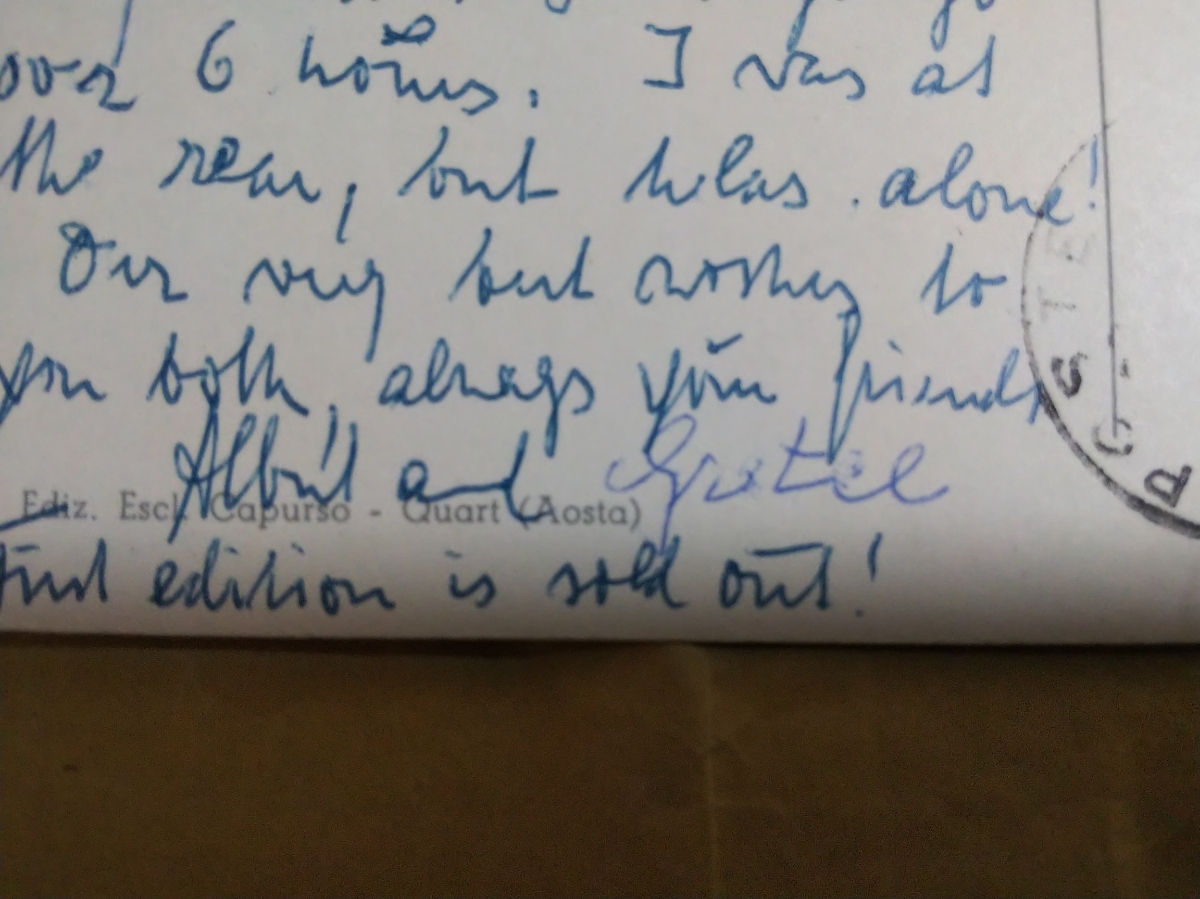 over 6 hours. I was at
the rear, but helas alone!
Our very best wishes to
you both, always your friends
Albert and
Ediz. Escl. Capurso - Quart (Aosta)
first edition is sold out!